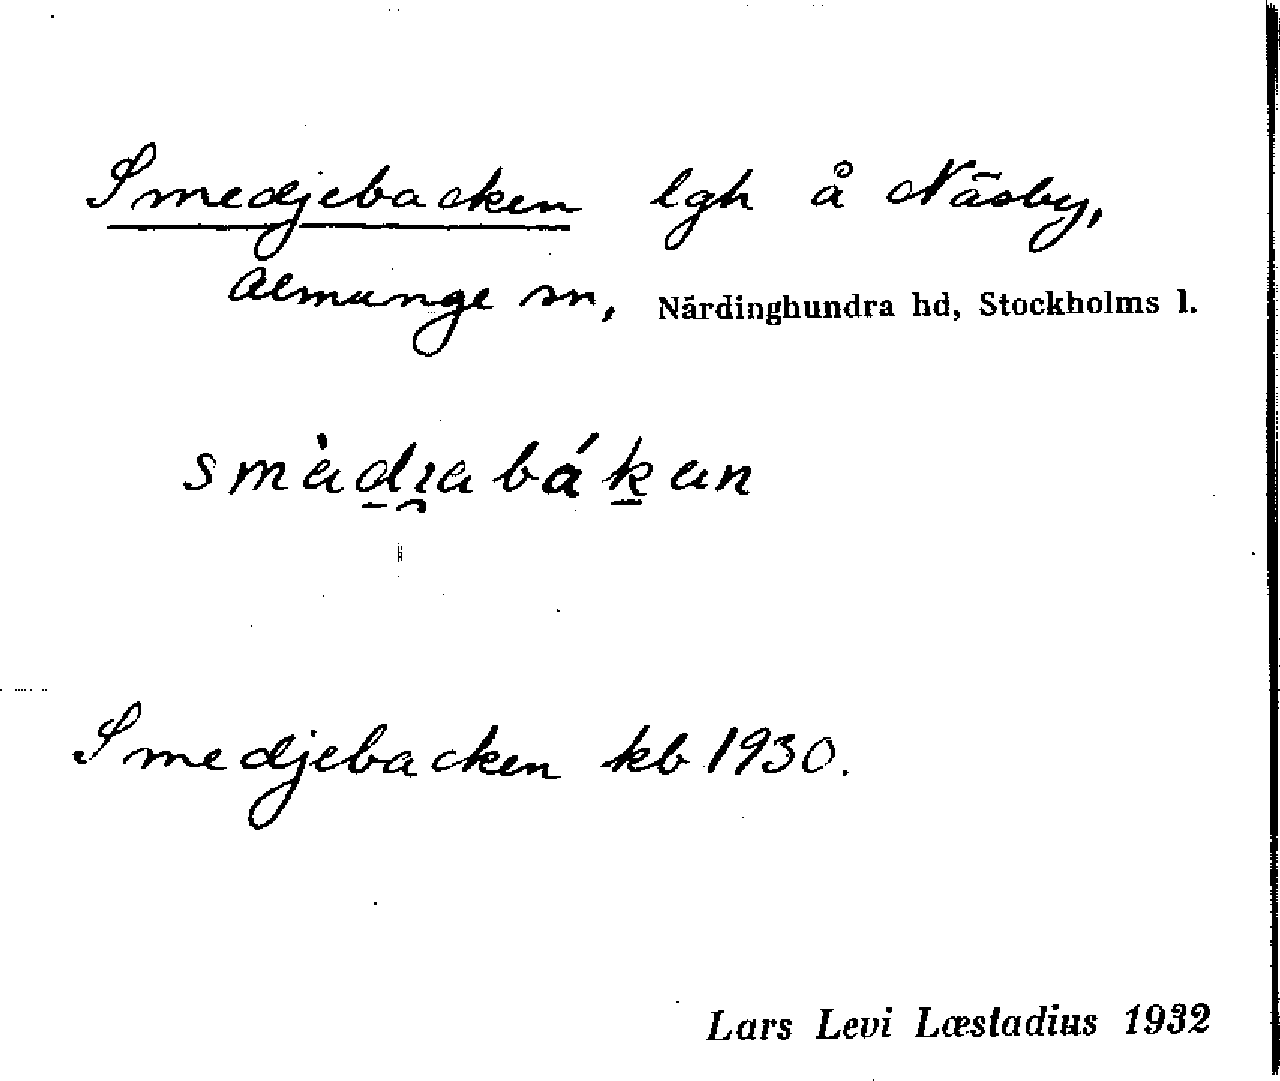 Smedjebacken lgh å Näsby,
Almunge sn, Närdinghundra hd, Stockholms l.
smàdɿabákan
Smedjebacken kb 1930.
Lars Levi Læstadius 1932